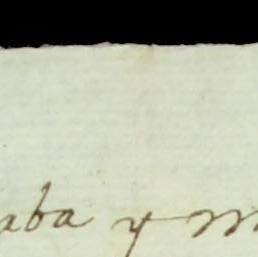 aba y m